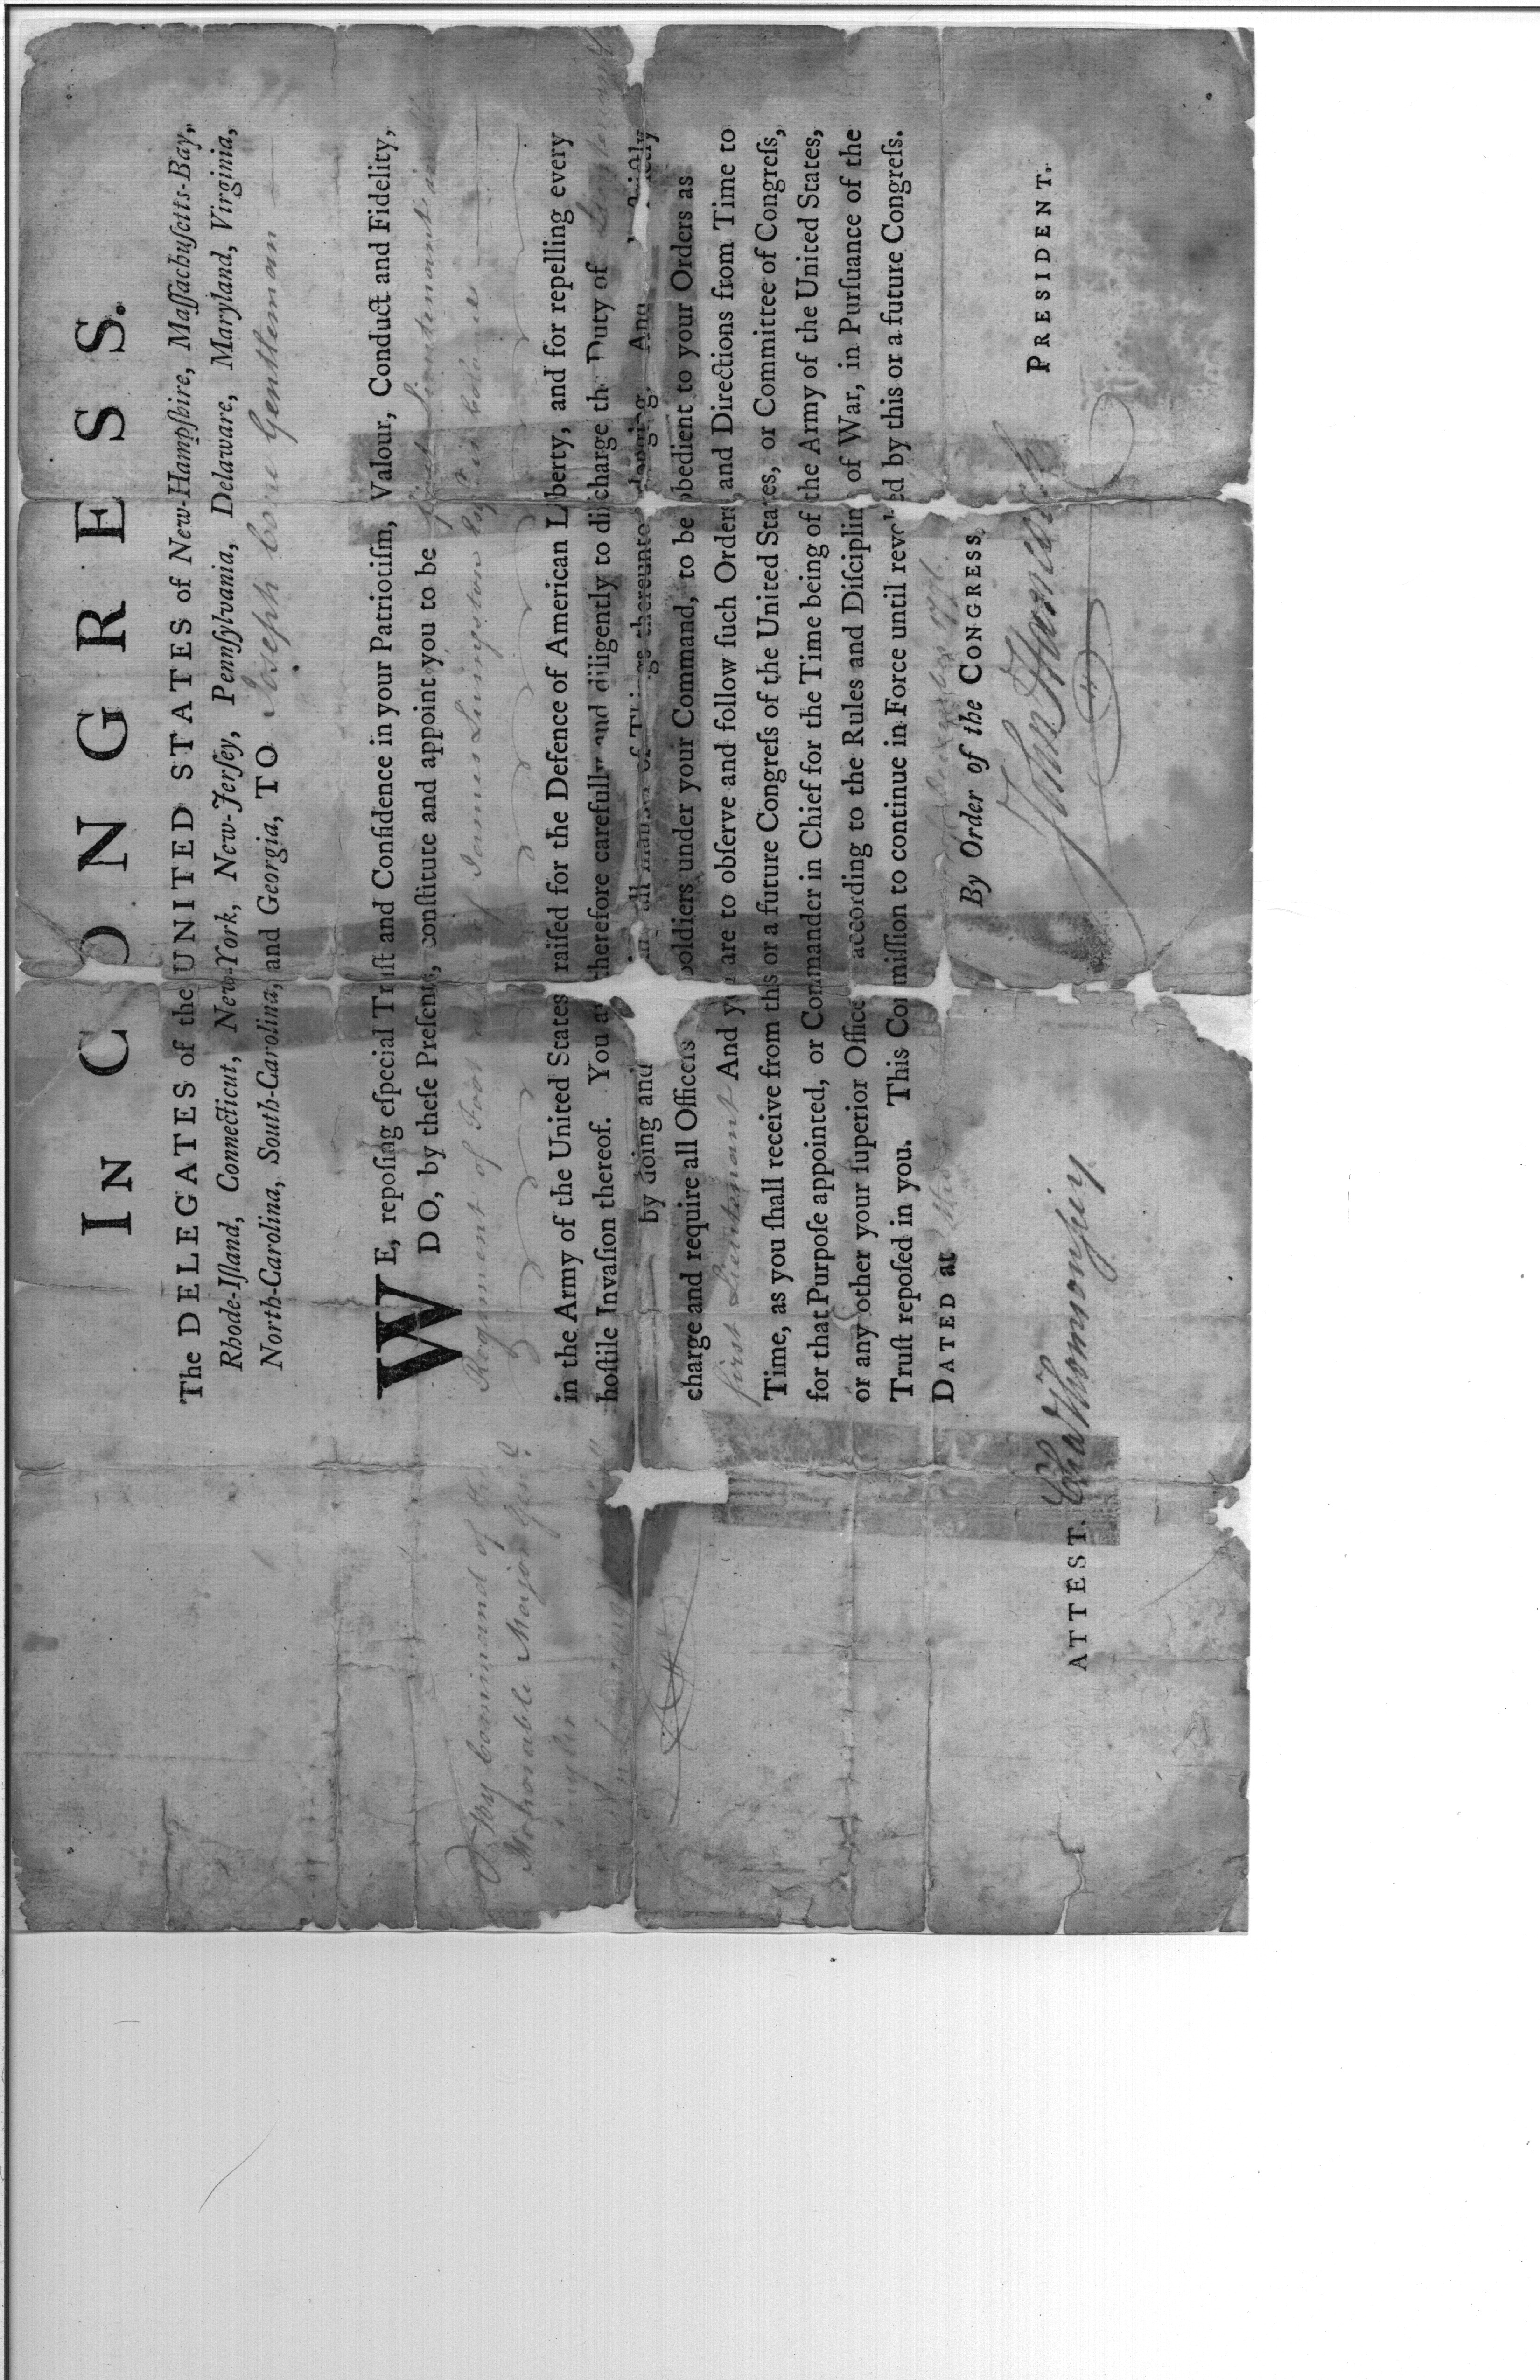 IN CONGRESS.
The DELEGATES of the UNITED STATES of New-Hampſhire, Maſſachuſetts-Bay,
Rhode-Iſland, Connecticut, New-York, New-Jerſey, Pennſylvania, Delaware, Maryland, Virginia,
North-Carolina, South-Carolina, and Georgia, TO Joseph Gentleman
WE, repoſing eſpecial Truſt and Confidence in your Patriotiſm, Valour, Conduct and Fidelity,
DO, by theſe Preſents, conſtitute and appoint you to be first Lieutenant in
Regiment of Foot James Livingston
in the Army of the United States raiſed for the Defence of American Liberty, and for repelling every
hoſtile Invaſion thereof. You are therefore carefully and diligently to diſcharge the Duty of
by doing and all manner of Things thereunto belonging. And
charge and require all Officers Soldiers under your Command, to be obedient to your Orders as
first Lieutenant And you are to obſerve and follow ſuch Orders and Directions from Time to
Time, as you ſhall receive from this or a future Congreſs of the United States, or Committee of Congreſs,
for that Purpoſe appointed, or Commander in Chief for the Time being of the Army of the United States,
or any other your ſuperior Officer according to the Rules and Diſcipline of War, in Purſuance of the
Truſt repoſed in you. This Commiſſion to continue in Force until revoked by this or a future Congreſs.
DATED at
By Order of the CONGRESS,
John Hancock PRESIDENT.
ATTEST. Cha Thomson ſecy
By command of the
Honorable Major Gen